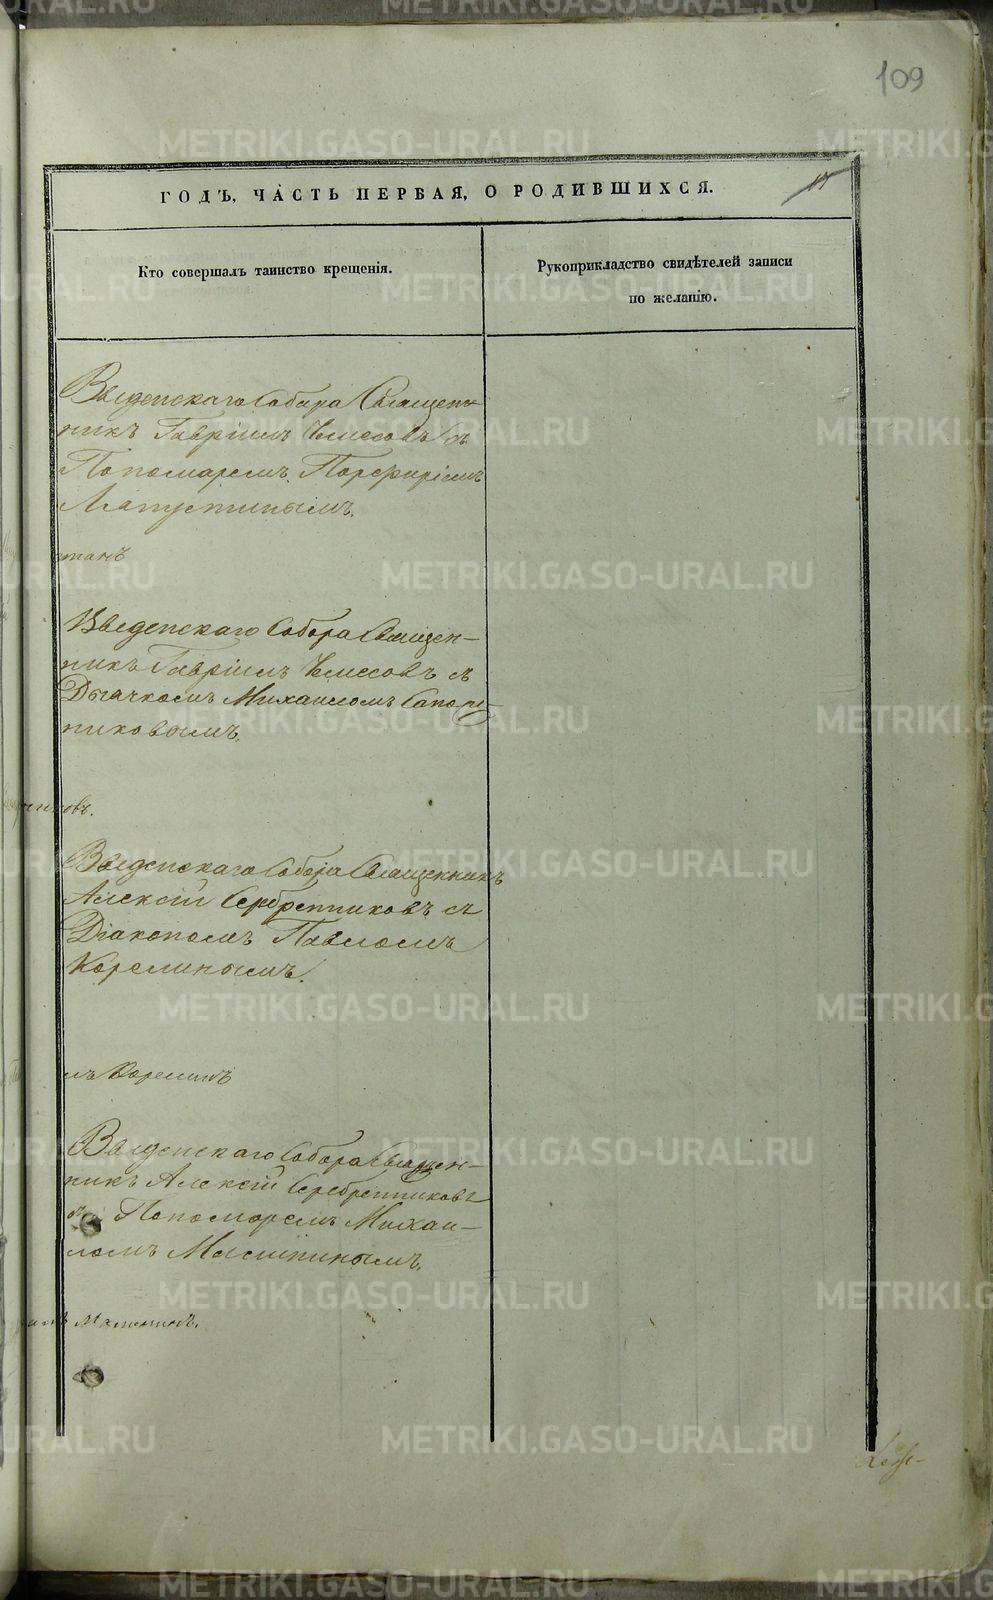 109
ГОДЪ, ЧАСТЬ ПЕРВАЯ, О РОДИВШИХСЯ.
Кто совершалъ таинство крещенія.
Рукоприкладство свидѣтелей записи
по желанію.
Введенскаго Собора Священ-
никъ Гавріилъ съ
Пономаремъ Порфиріемъ
Введенскаго Собора Священ-
никъ Гавріилъ съ
Дьячкомъ Михаиломъ Сапож-
никовымъ.
Введенскаго Собора Священникъ
Алексій Серебренниковъ съ
Діакономъ Павломъ
Корелинымъ.
лъ Корелинъ
Введенскаго Собора Священ-
никъ Алексій Серебренниковъ
съ Пономаремъ Михаи-
ломъ
METRIKI.GASO-URAL.RU